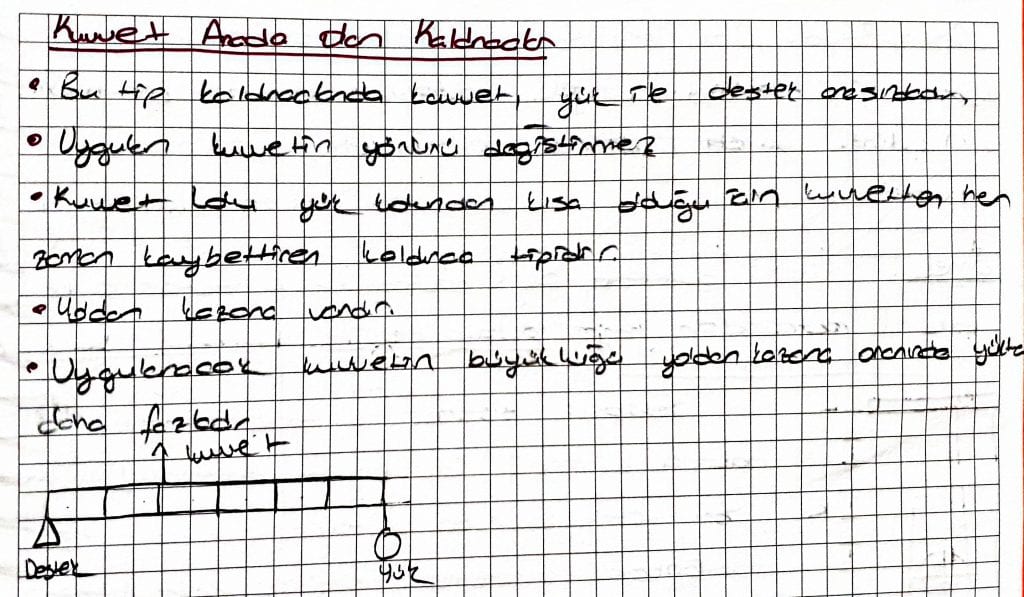 Kuvvet Arada olan Kaldıraçlar
• Bu tip kaldıraçlarda kuvvet, yük ile destek arasındadır.
• Uygulanan kuvvetin yönünü değiştirmez
• Kuvvet kolu yük kolundan kısa olduğu için kuvvetten her
zaman kaybettiren kaldıraç tipidir.
• Yoldan kazanç vardır.
• Uygulanacak kuvvetin büyüklüğü yoldan kazanç oranında yükten
daha fazladır
kuvvet
Destek
Yük